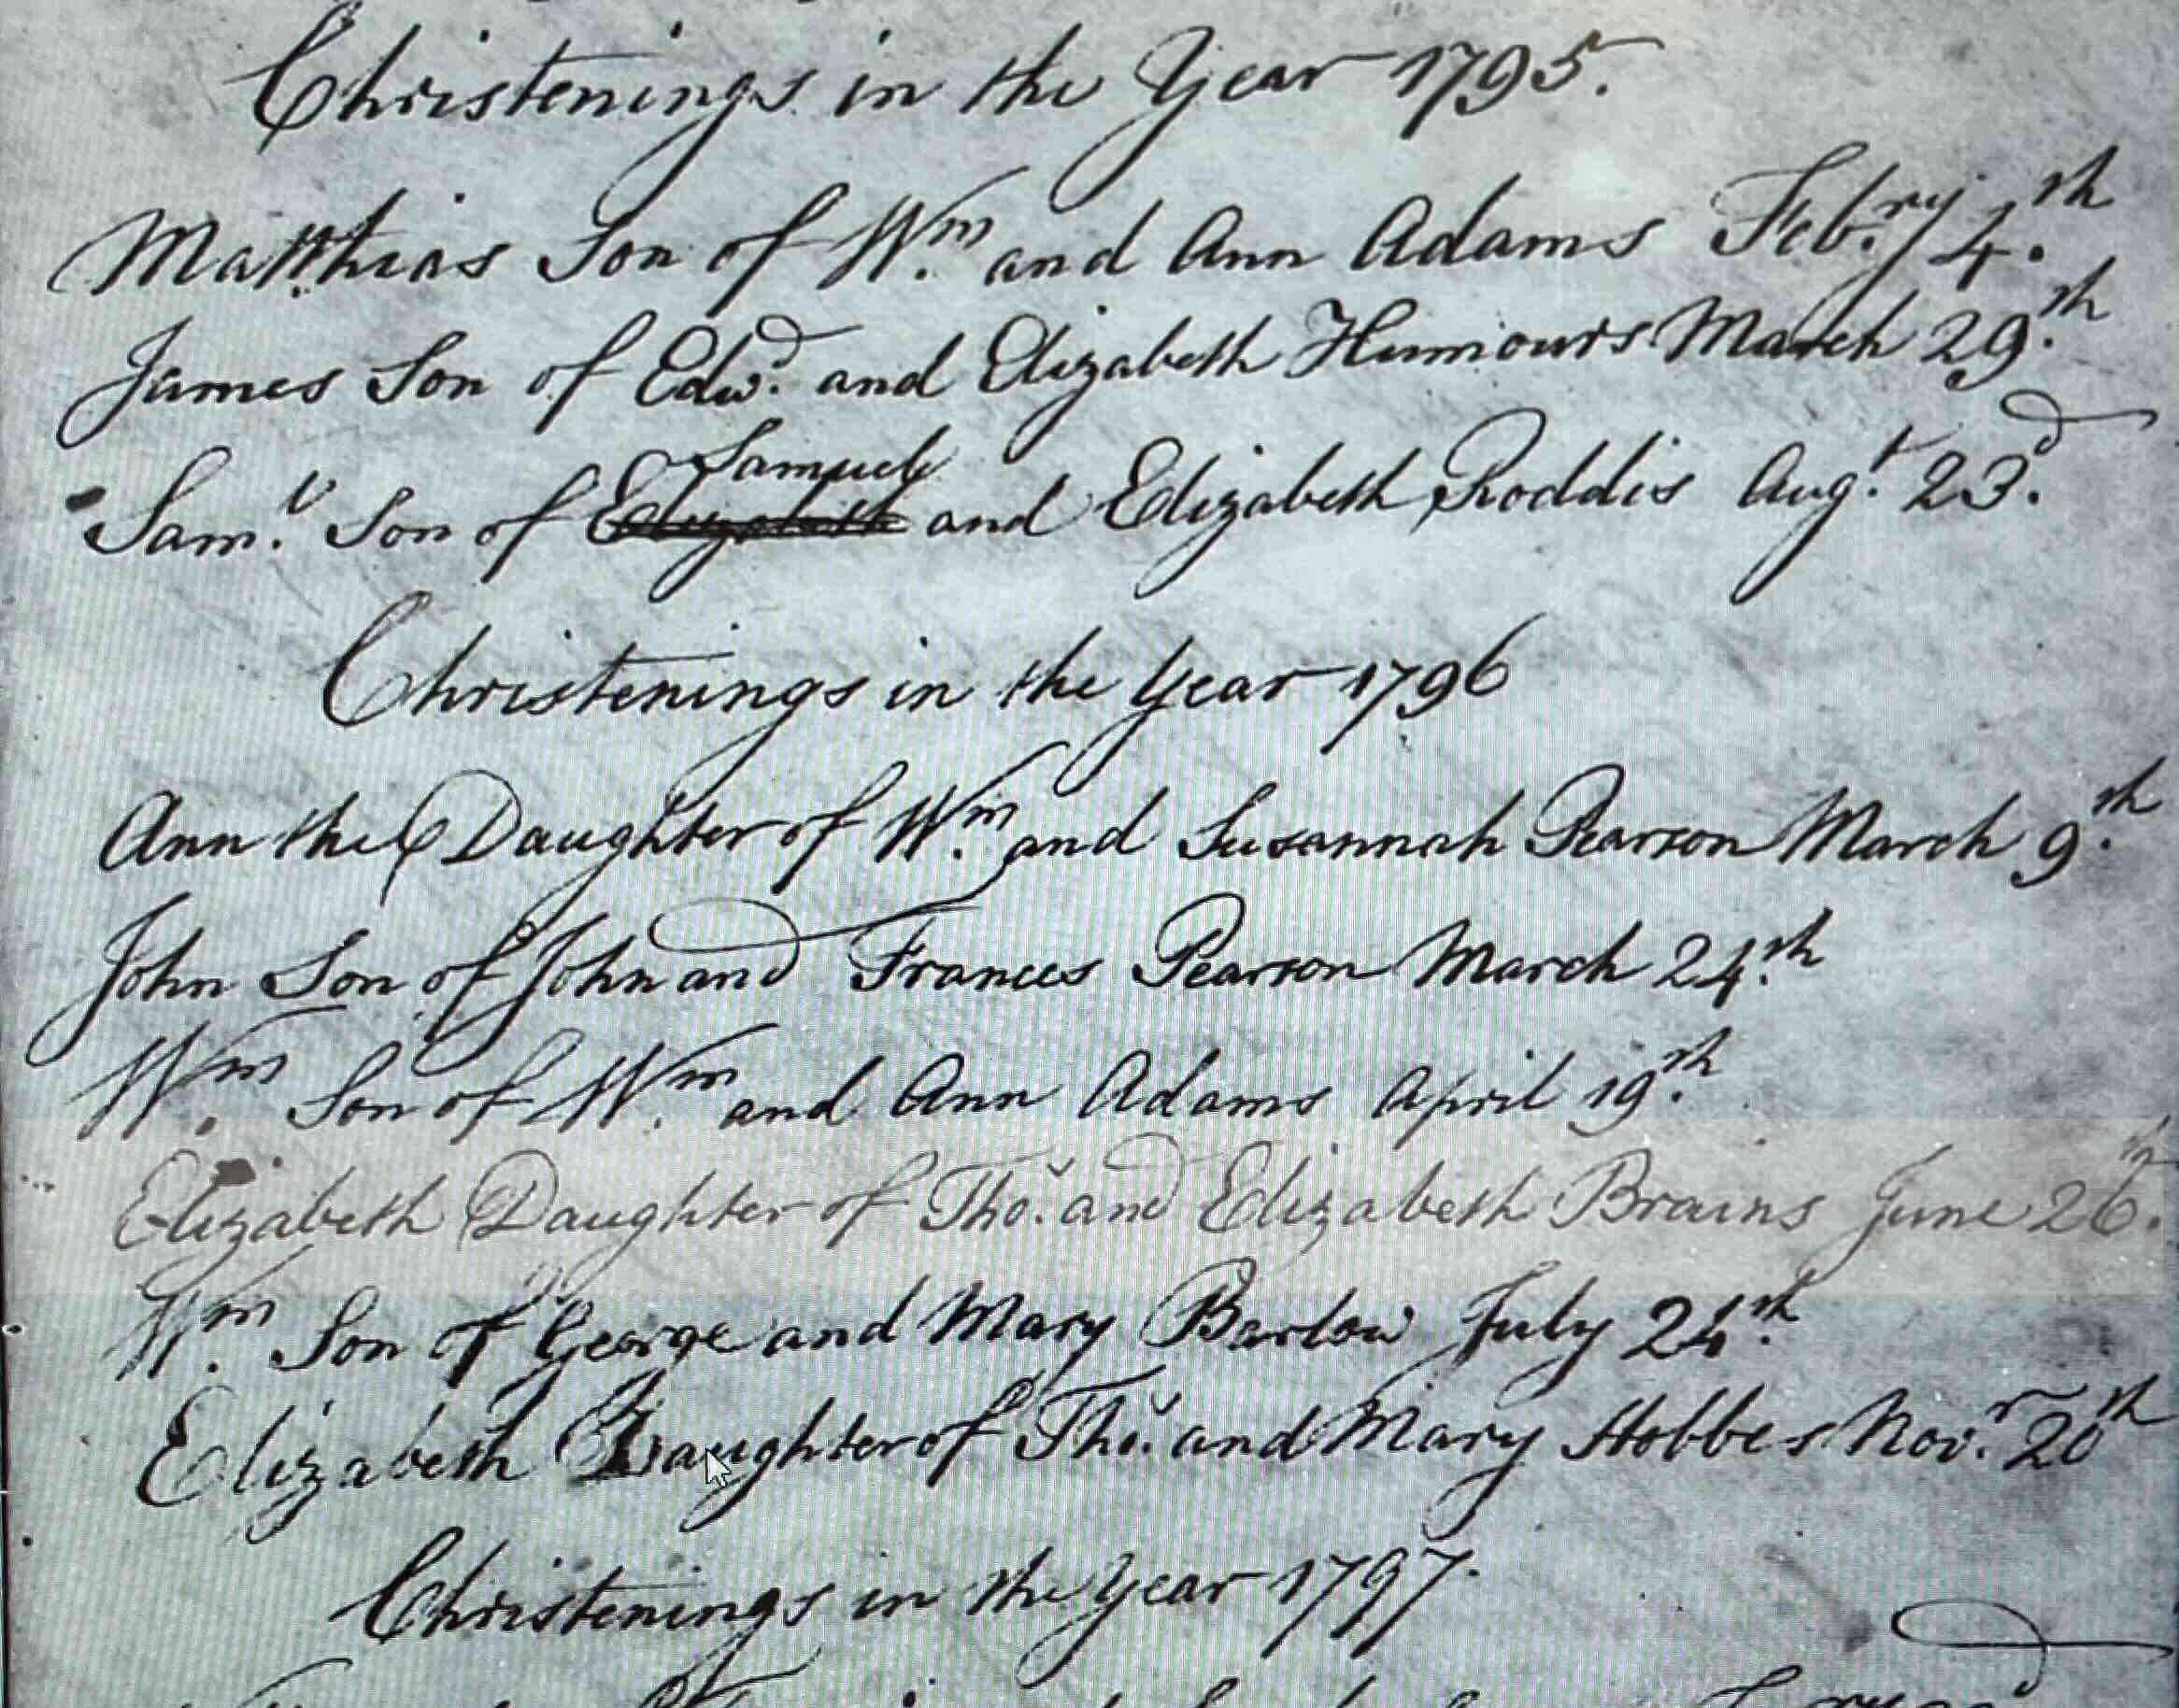 Christenings in the Year 1795.
Matthias Son of Wm. and Ann Adams Febry. 4th.
James Son of Edwd. and Elizabeth March 29th.
Samuel
Saml. Son of Elizabeth and Elizabeth Roddis Augt. 23d.
Christenings in the Year 1796
Ann the Daughter of Wm. and Susannah Pearson March 9th.
John Son of John and Frances Pearson March 24th.
Wm. Son of Wm. and Ann Adams April 19th.
Elizabeth Daughter of Thos. and Elizabeth Brains June 26th.
Wm. Son of George and Mary Barlow July 24th.
Elizabeth Daughter of Thos. and Mary Hobbes Novr. 20th
Christenings in the Year 1797.